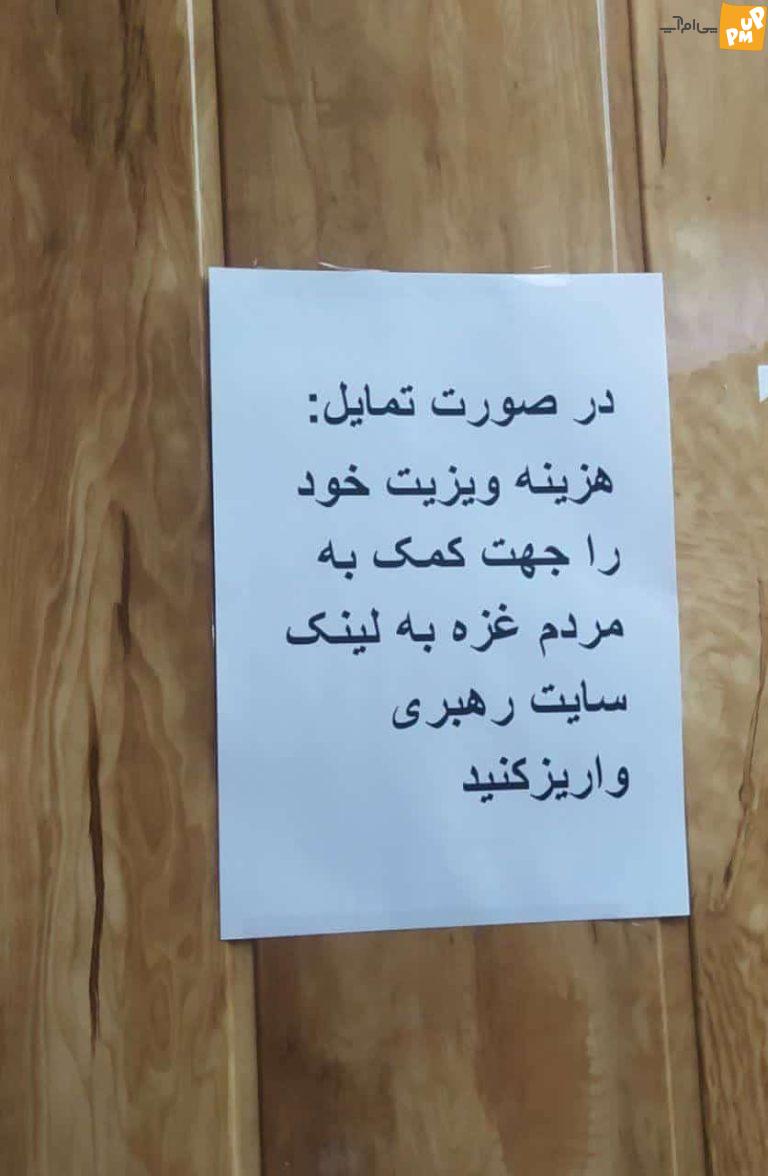 پی‌ام‌آپ
PM UP
در صورت تمایل:
هزینه ویزیت خود
را جهت کمک به
مردم غزه به لینک
سایت رهبری
واریزکنید